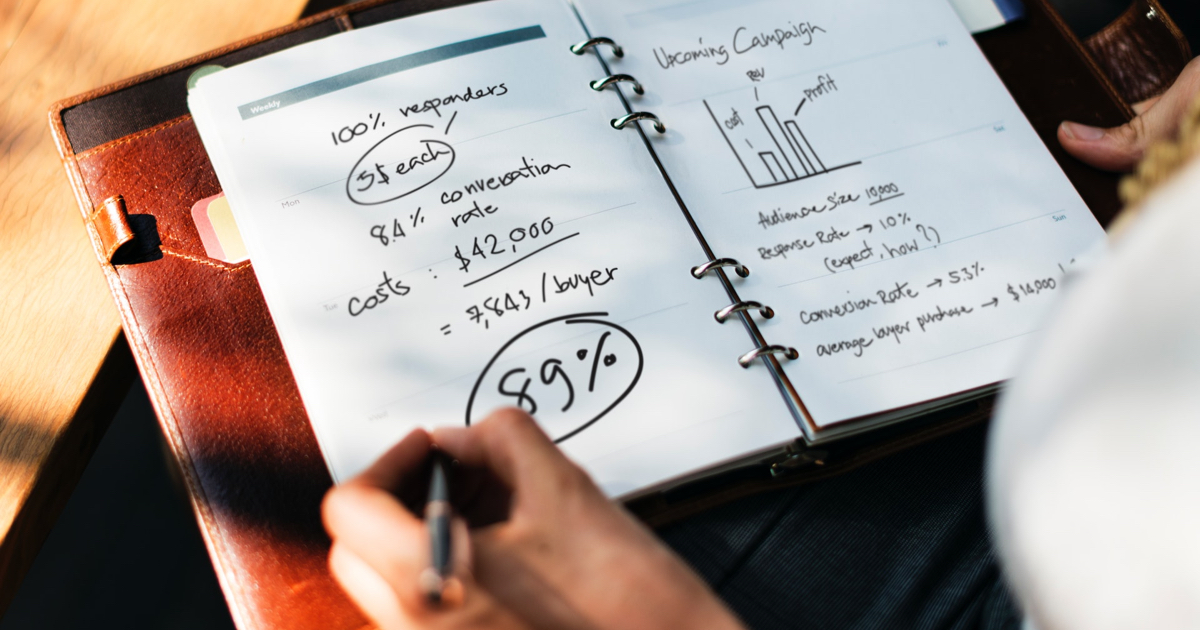 Weekly
100% responders
5$ each
Mon
8.4% conversation
rate
costs : $42,000
= 7,843 / buyer
89%
Upcoming Campaign
cost
Rev
Profit
Sat
Audience Size 10,000
Response Rate → 10%
(expect, how?)
Sun
Conversion Rate → 5.3%
average buyer purchase → $10,000